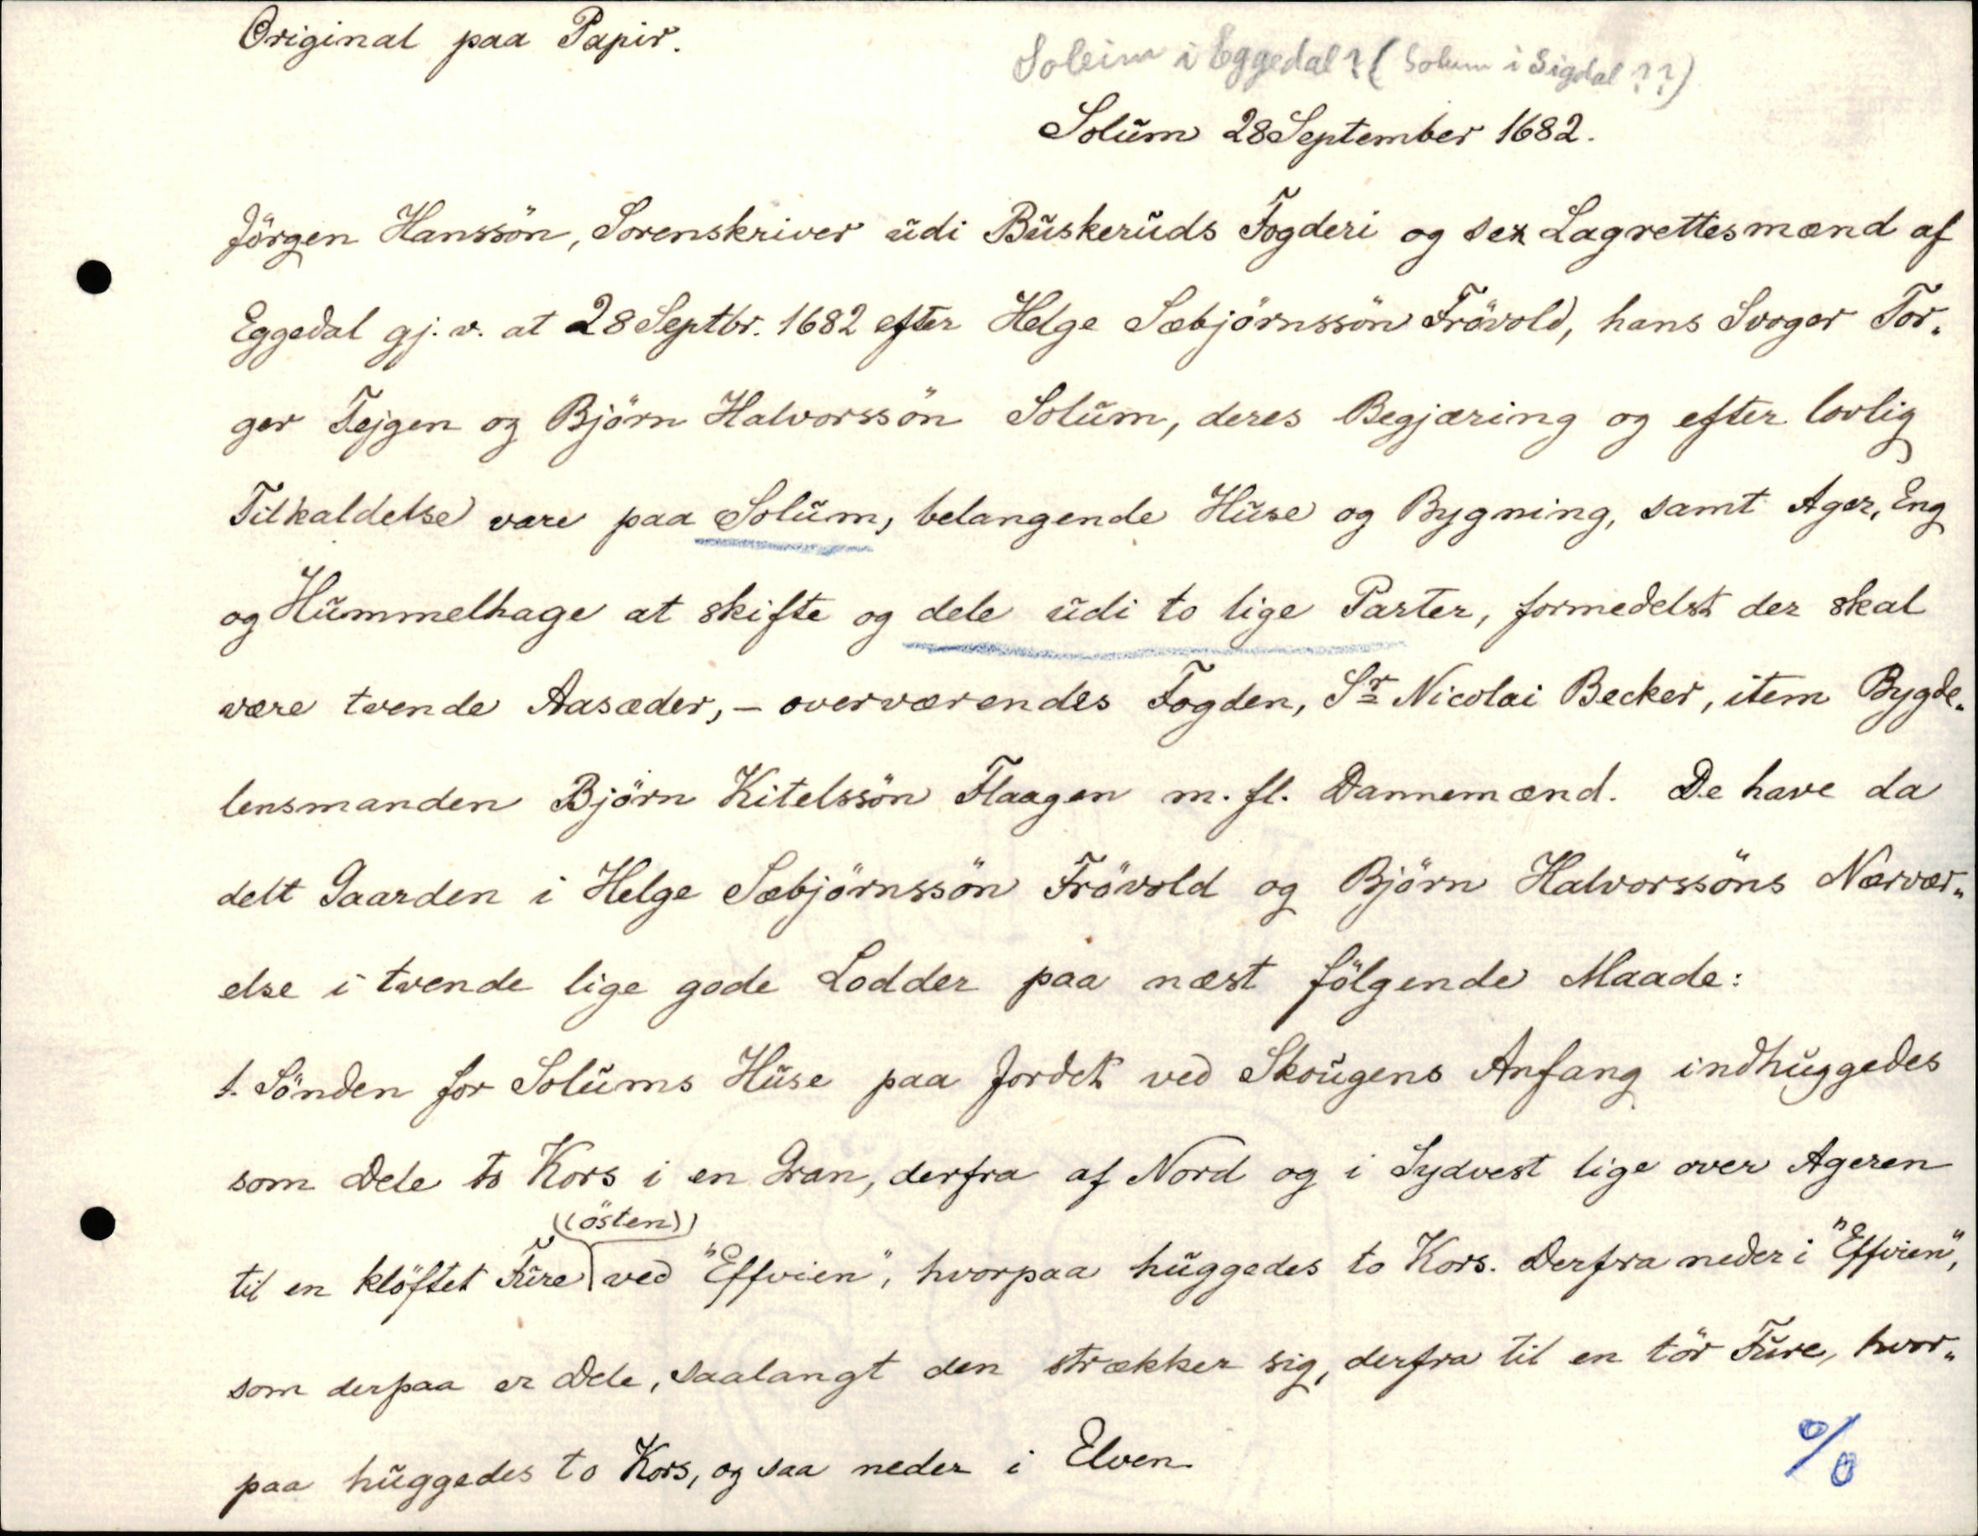 Original paa Papir.
Soleim i Eggedal? (Solum i Sigdal??)
Solŭm 28 September 1682.
Jörgen Hanssön, Sorenskriver ŭdi Bŭskerŭds Fogderi og sex Lagrettesmænd af
Eggedal gj. v. at 28 Septbr. 1682 efter Helge Sæbjörnssön Frövold, hans Svoger Tor-
ger Tejgen og Björn Halvorssön Solŭm, deres Begjæring og efter lovlig
Tilkaldelse vare paa Solŭm, belangende Hŭse og Bygning, samt Ager, Eng
og Hŭmmelhage at skifte og dele ŭdi to lige Parter, formedelst der skal
være tvende Aasæder, – overværendes Fogden, Sr Nicolai Becker, item Bygde-
lensmanden Björn Kitelssön Flaagen m. fl. Dannemænd. De have da
delt Gaarden i Helge Sæbjörnssön Frövold og Björn Halvorssöns Nærvær-
else i tvende lige gode Lodder paa næst fölgende Maade:
1. Sönden for Solŭms Hŭse paa Jordet ved Skoŭgens Anfang indhŭggedes
som Dele to Kors i en Gran, derfra af Nord og i Sydvest lige over Ageren
((östen))
til en klöftet Fŭre ved "Effvien", hvorpaa hŭggedes to Kors. Derfra neder i "Effvien",
som derpaa er Dele, saalangt den strækker sig, derfra til en tör Fŭre, hvor-
paa hŭggedes to Kors, og saa neder i Elven.
%